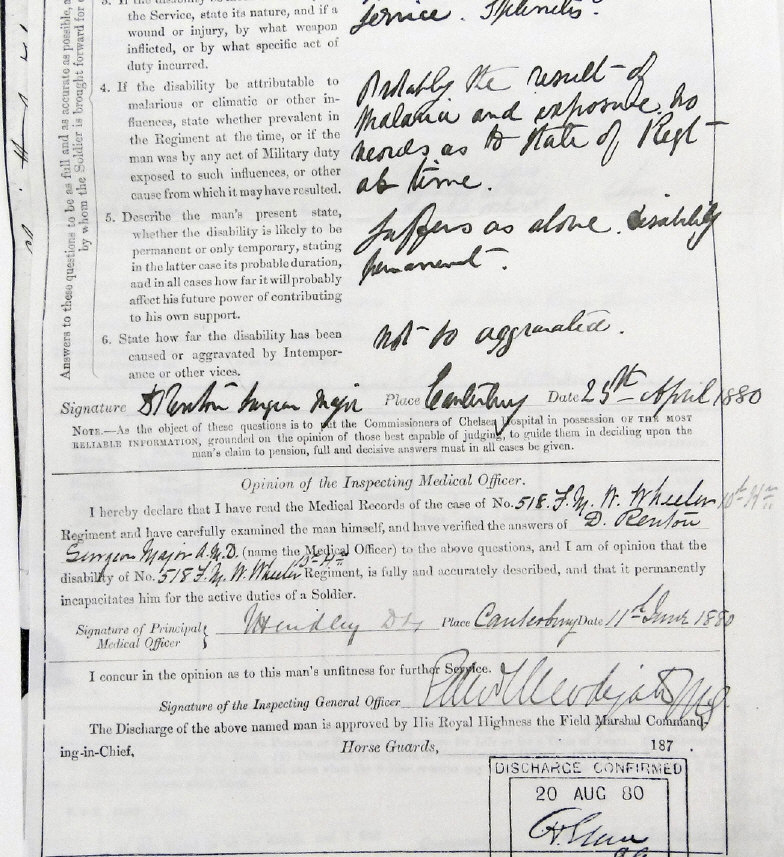 Answers to these questions to be as full and as accurate as possible,
by whom the Soldier is brought forward for
the Service, state its nature, and if a
wound or injury, by what weapon
inflicted, or by what specific act of
duty incurred.
Service. Splenitis.
4. If the disability be attributable to
malarious or climatic or other in-
fluences, state whether prevalent in
the Regiment at the time, or if the
man was by any act of Military duty
exposed to such influences, or other
cause from which it may have resulted.
Probably the result of
Malaria and exposure. no
records as to state of Regt
at time.
5. Describe the man's present state,
whether the disability is likely to be
permanent or only temporary, stating
in the latter case its probable duration,
and in all cases how far it will probably
affect his future power of contributing
to his own support.
Suffers as above. disability
permanent.
6. State how far the disability has been
caused or aggravated by Intemper-
ance or other vices.
not so aggravated.
Signature D Renton Surgeon Major Place Canterbury Date 25th April 1880
NOTE.—As the object of these questions is to put the Commissioners of Chelsea Hospital in possession OF THE MOST
RELIABLE INFORMATION, grounded on the opinion of those best capable of judging, to guide them in deciding upon the
man's claim to pension, full and decisive answers must in all cases be given.
Opinion of the Inspecting Medical Officer.
I hereby declare that I have read the Medical Records of the case of No. 518 F. M. W. Wheeler
Regiment and have carefully examined the man himself, and have verified the answers of D. Renton
Surgeon Major A.M.D. (name the Medical Officer) to the above questions, and I am of opinion that the
disability of No. 518 F. M. W. Wheeler Regiment, is fully and accurately described, and that it permanently
incapacitates him for the active duties of a Soldier.
Signature of Principal Medical Officer Place Canterbury Date 11th June 1880
I concur in the opinion as to this man's unfitness for further Service.
Signature of the Inspecting General Officer
The Discharge of the above named man is approved by His Royal Highness the Field Marshal Command-
ing-in-Chief, Horse Guards, 187 .
DISCHARGE CONFIRMED
20 AUG 80